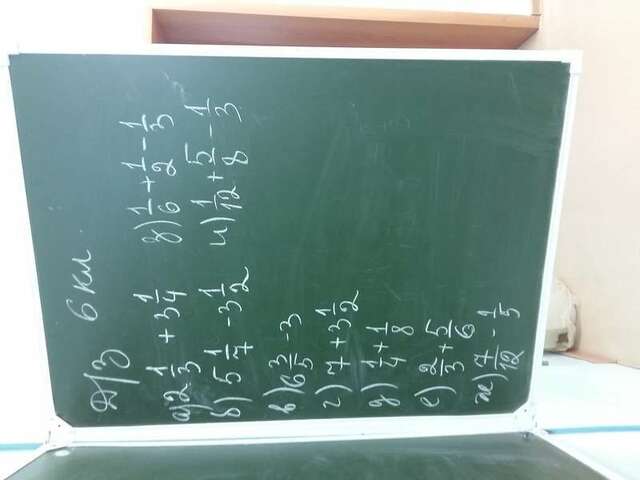 6 кл
Д/З
а) 2 1/3 + 3 1/4
б) 5 1/7 - 3 1/2
в) 6 3/5 - 3
г) 7 + 3 1/2
д) 1/4 + 1/8
е) 2/3 + 5/6
ж) 7/12 - 1/5
з) 1/6 + 1/2 - 1/3
и) 1/12 + 5/8 - 1/3